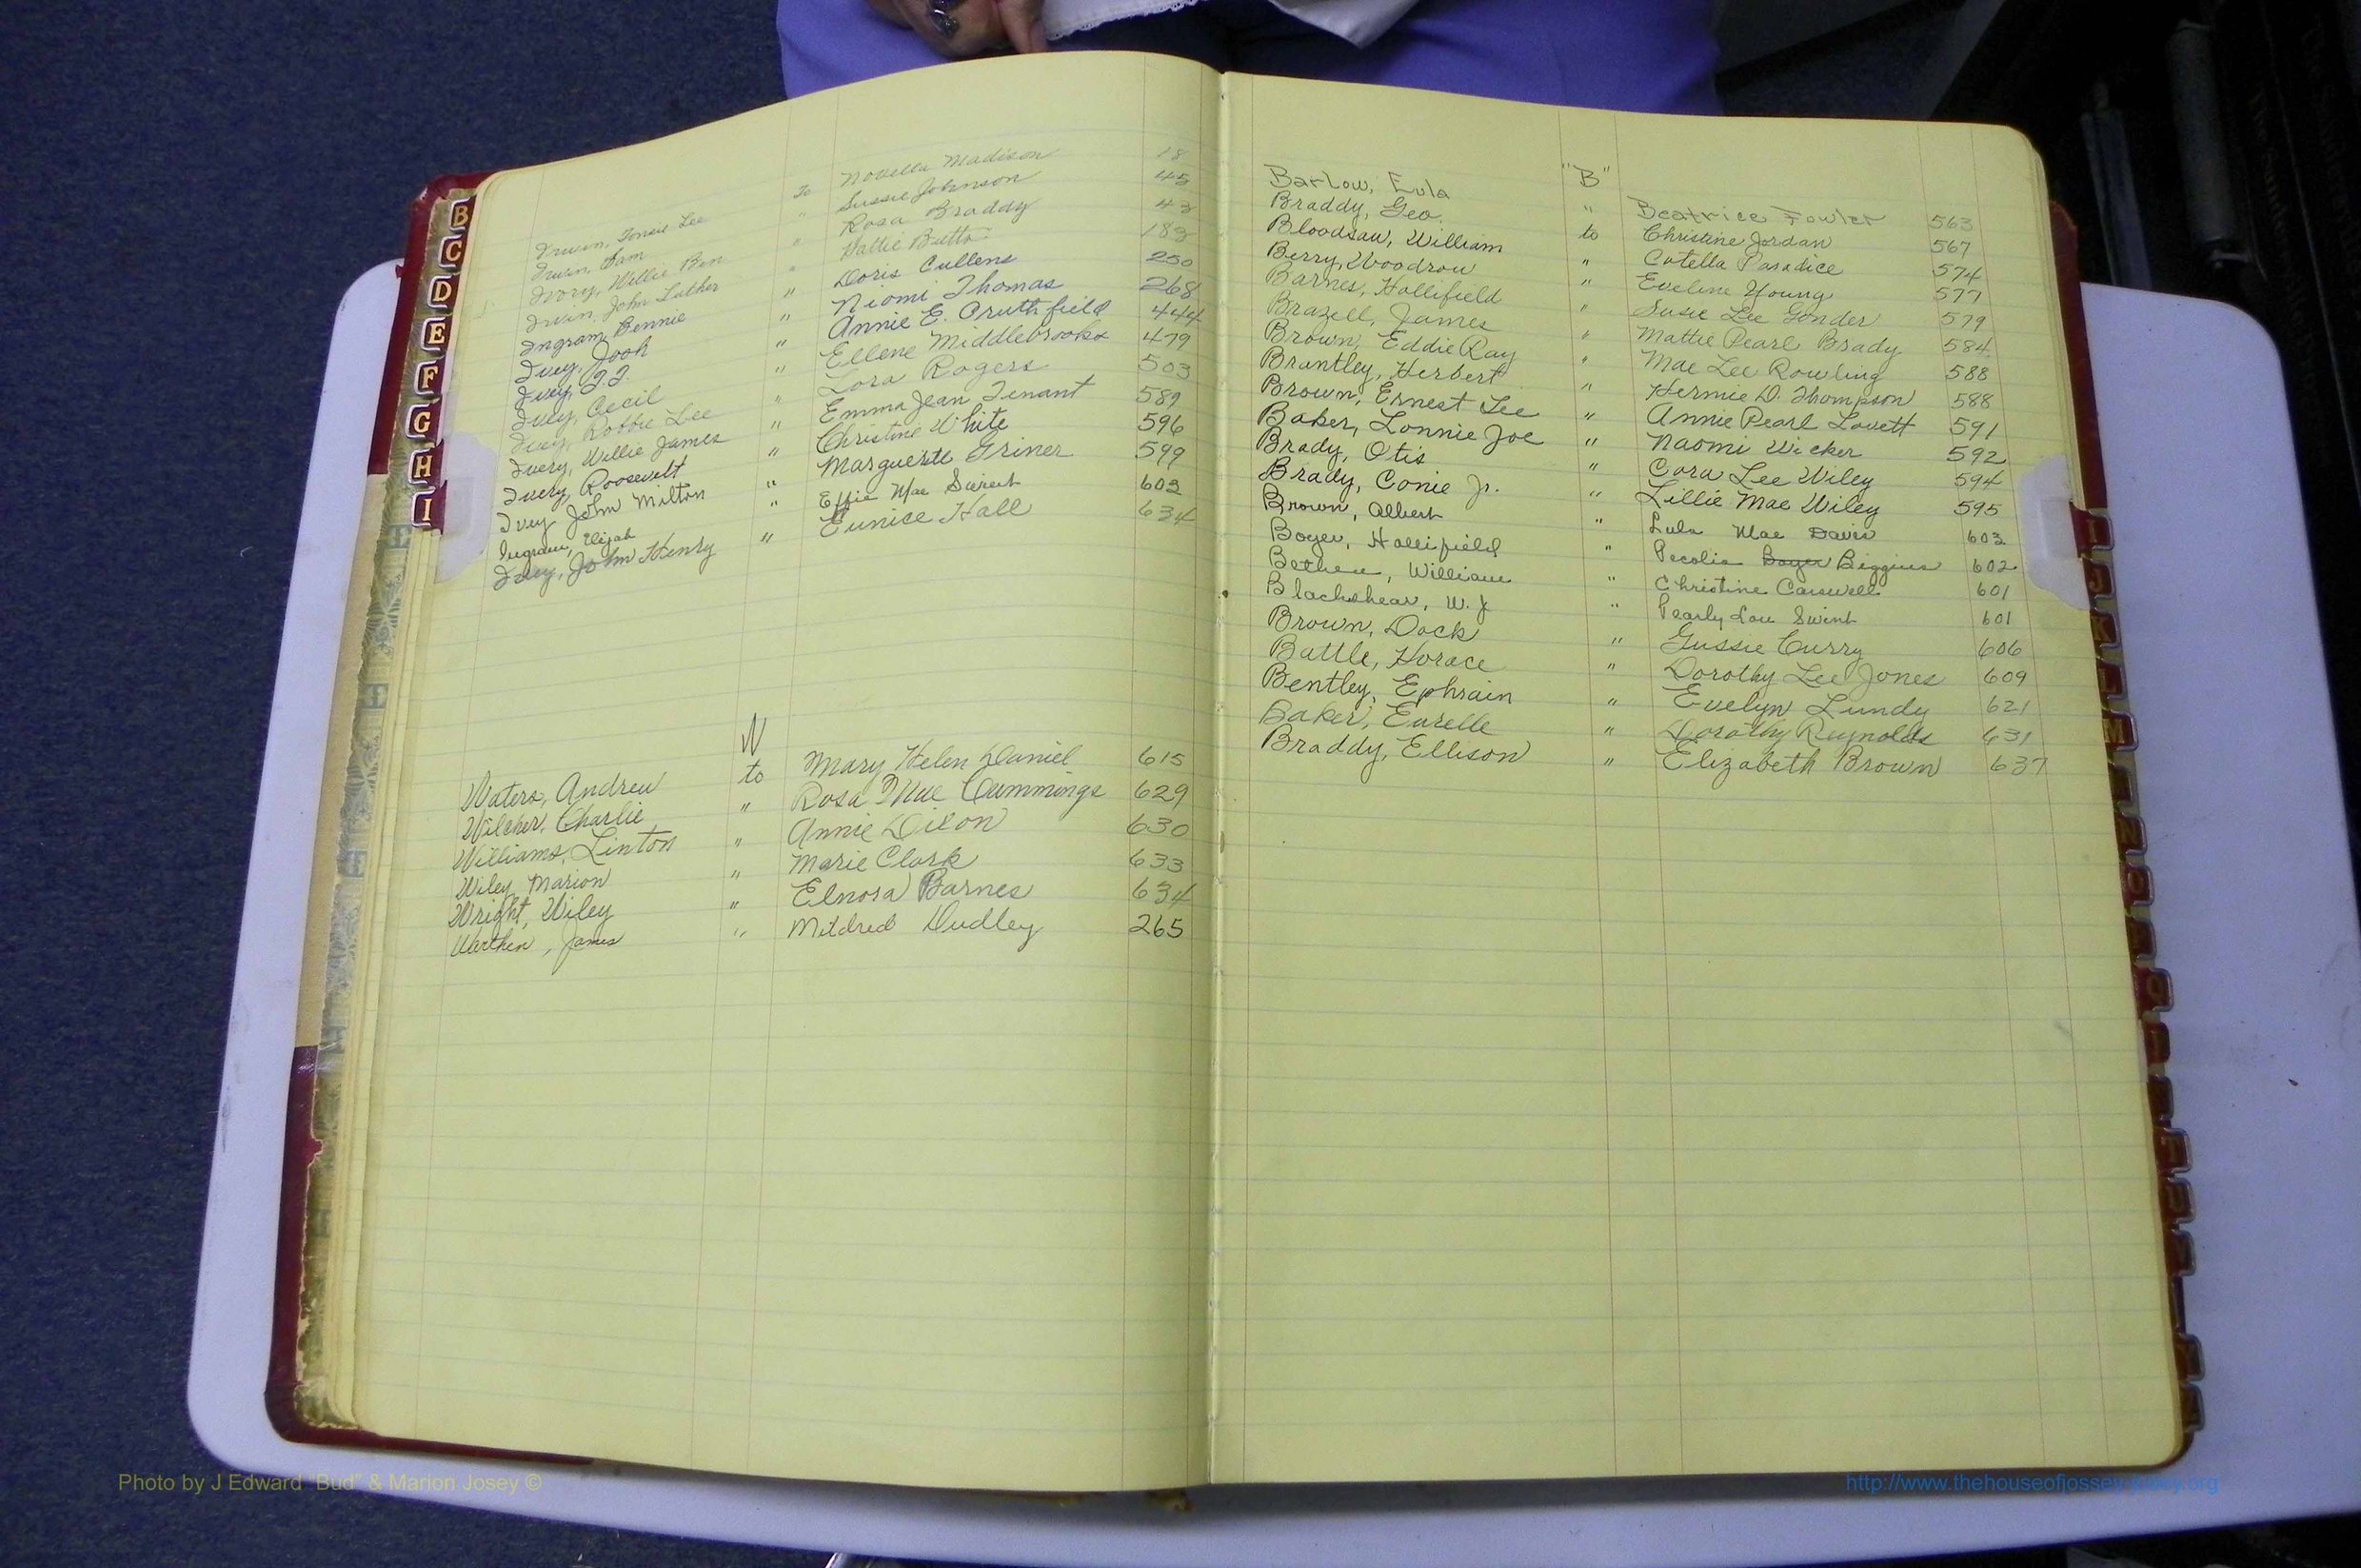 B
C
D
E
F
G
H
I
Irwin, Tonsie Lee To Novella Madison 18
Irwin, Sam " Sussie Johnson 45
Ivory, Willie Ben " Rosa Braddy 43
Irvin, John Luther " Hattie Butts 183
Ingram, Bennie " Doris Cullens 250
Ivey, Jook " Niomi Thomas 268
Ivey, " Annie E. Cruthfield 444
Ivey, Cecil " Ellene Middlebrooks 479
Ivey, Robbie Lee " Lora Rogers 503
Ivery, Willie James " Emma Jean Tenant 589
Ivery, Roosevelt " Christine White 596
Ivey John Milton " Marguerite Griner 599
Ingram, Elijah " Effie Mae Swint 602
Ivey, John Henry " Eunice Hall 634
W
Waters, Andrew to Mary Helen Daniel 615
Wilcher, Charlie " Rosa Mae Cummings 629
Williams, Linton " Annie Dixon 630
Wiley, Marion " Marie Clark 633
Wright, Wiley " Elnora Barnes 634
Warthen, James " Mildred Dudley 265
"B"
Barlow, Eula " Beatrice Fowler 563
Braddy, Geo. to Christine Jordan 567
Bloodsaw, William " Cotella Paradice 574
Berry, Woodrow " Eveline Young 577
Barnes, Hollifield " Susie Lee Gonder 579
Brazell, James " Mattie Pearl Brady 584
Brown, Eddie Ray " Mae Lee Rowling 588
Brantley, Herbert " Hermie D. Thompson 588
Brown, Ernest Lee " Annie Pearl Lovett 591
Baker, Lonnie Joe " Naomi Wicker 592
Brady, Otis " Cora Lee Wiley 594
Brady, Conie Jr. " Lillie Mae Wiley 595
Brown, Albert " Lula Mae Davis 603
Boyer, Hollifield " Pecolia Boyer Biggins 602
Bethea, William " Christine Carswell 601
Blackshear, W. J " Pearly Lou Swint 601
Brown, Dock " Gussie Curry 606
Battle, Horace " Dorothy Lee Jones 609
Bentley, Ephrain " Evelyn Lundy 621
Baker, Eurelle " Dorothy Reynolds 631
Braddy, Ellison " Elizabeth Brown 637
Photo by J Edward "Bud" & Marion Josey ©
http://www.thehouseofjossey-josey.org